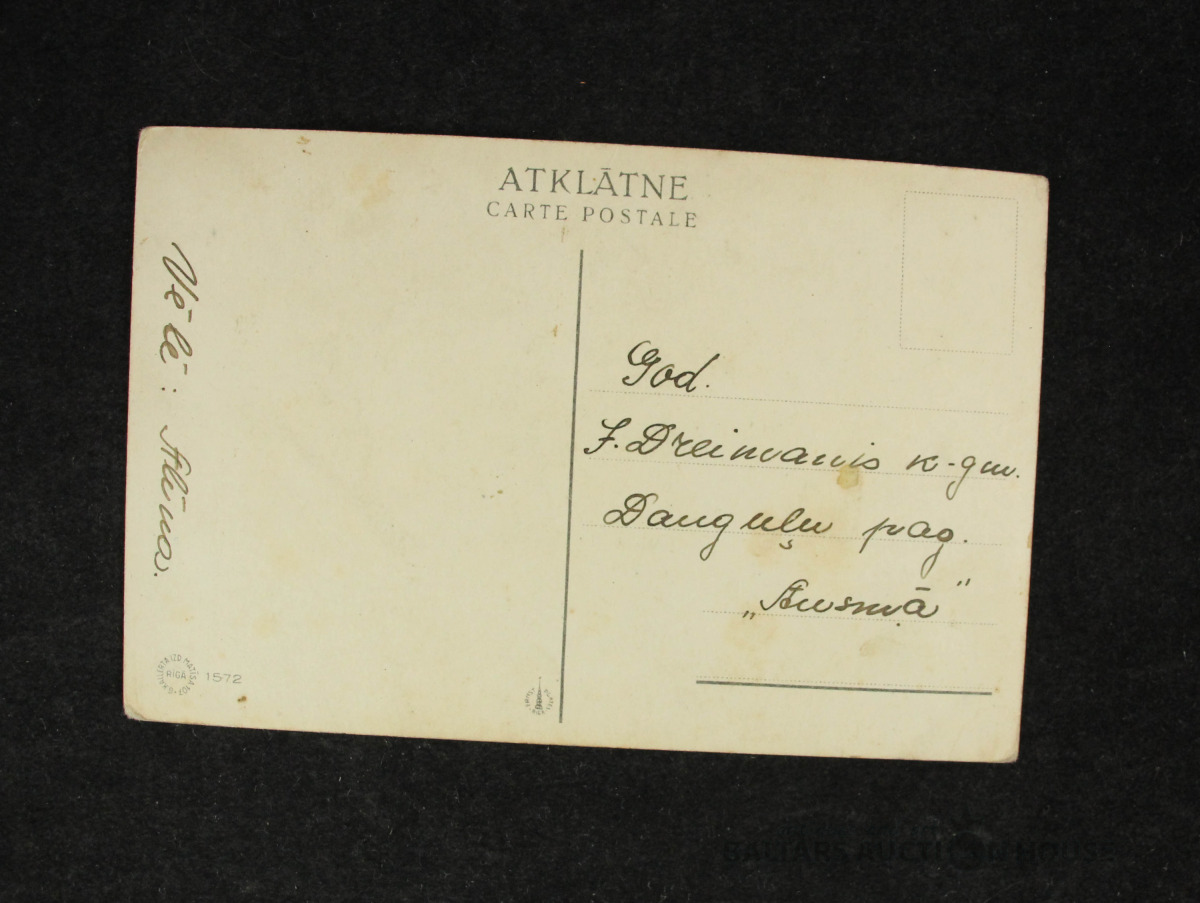 ATKLĀTNE
CARTE POSTALE
Vēlē: Alīna.
God.
J. Dreimanis k-gm.
Dauguļu pag.
„Ausmā”
RĪGA
1572
BALTARS AUCTION HOUSE